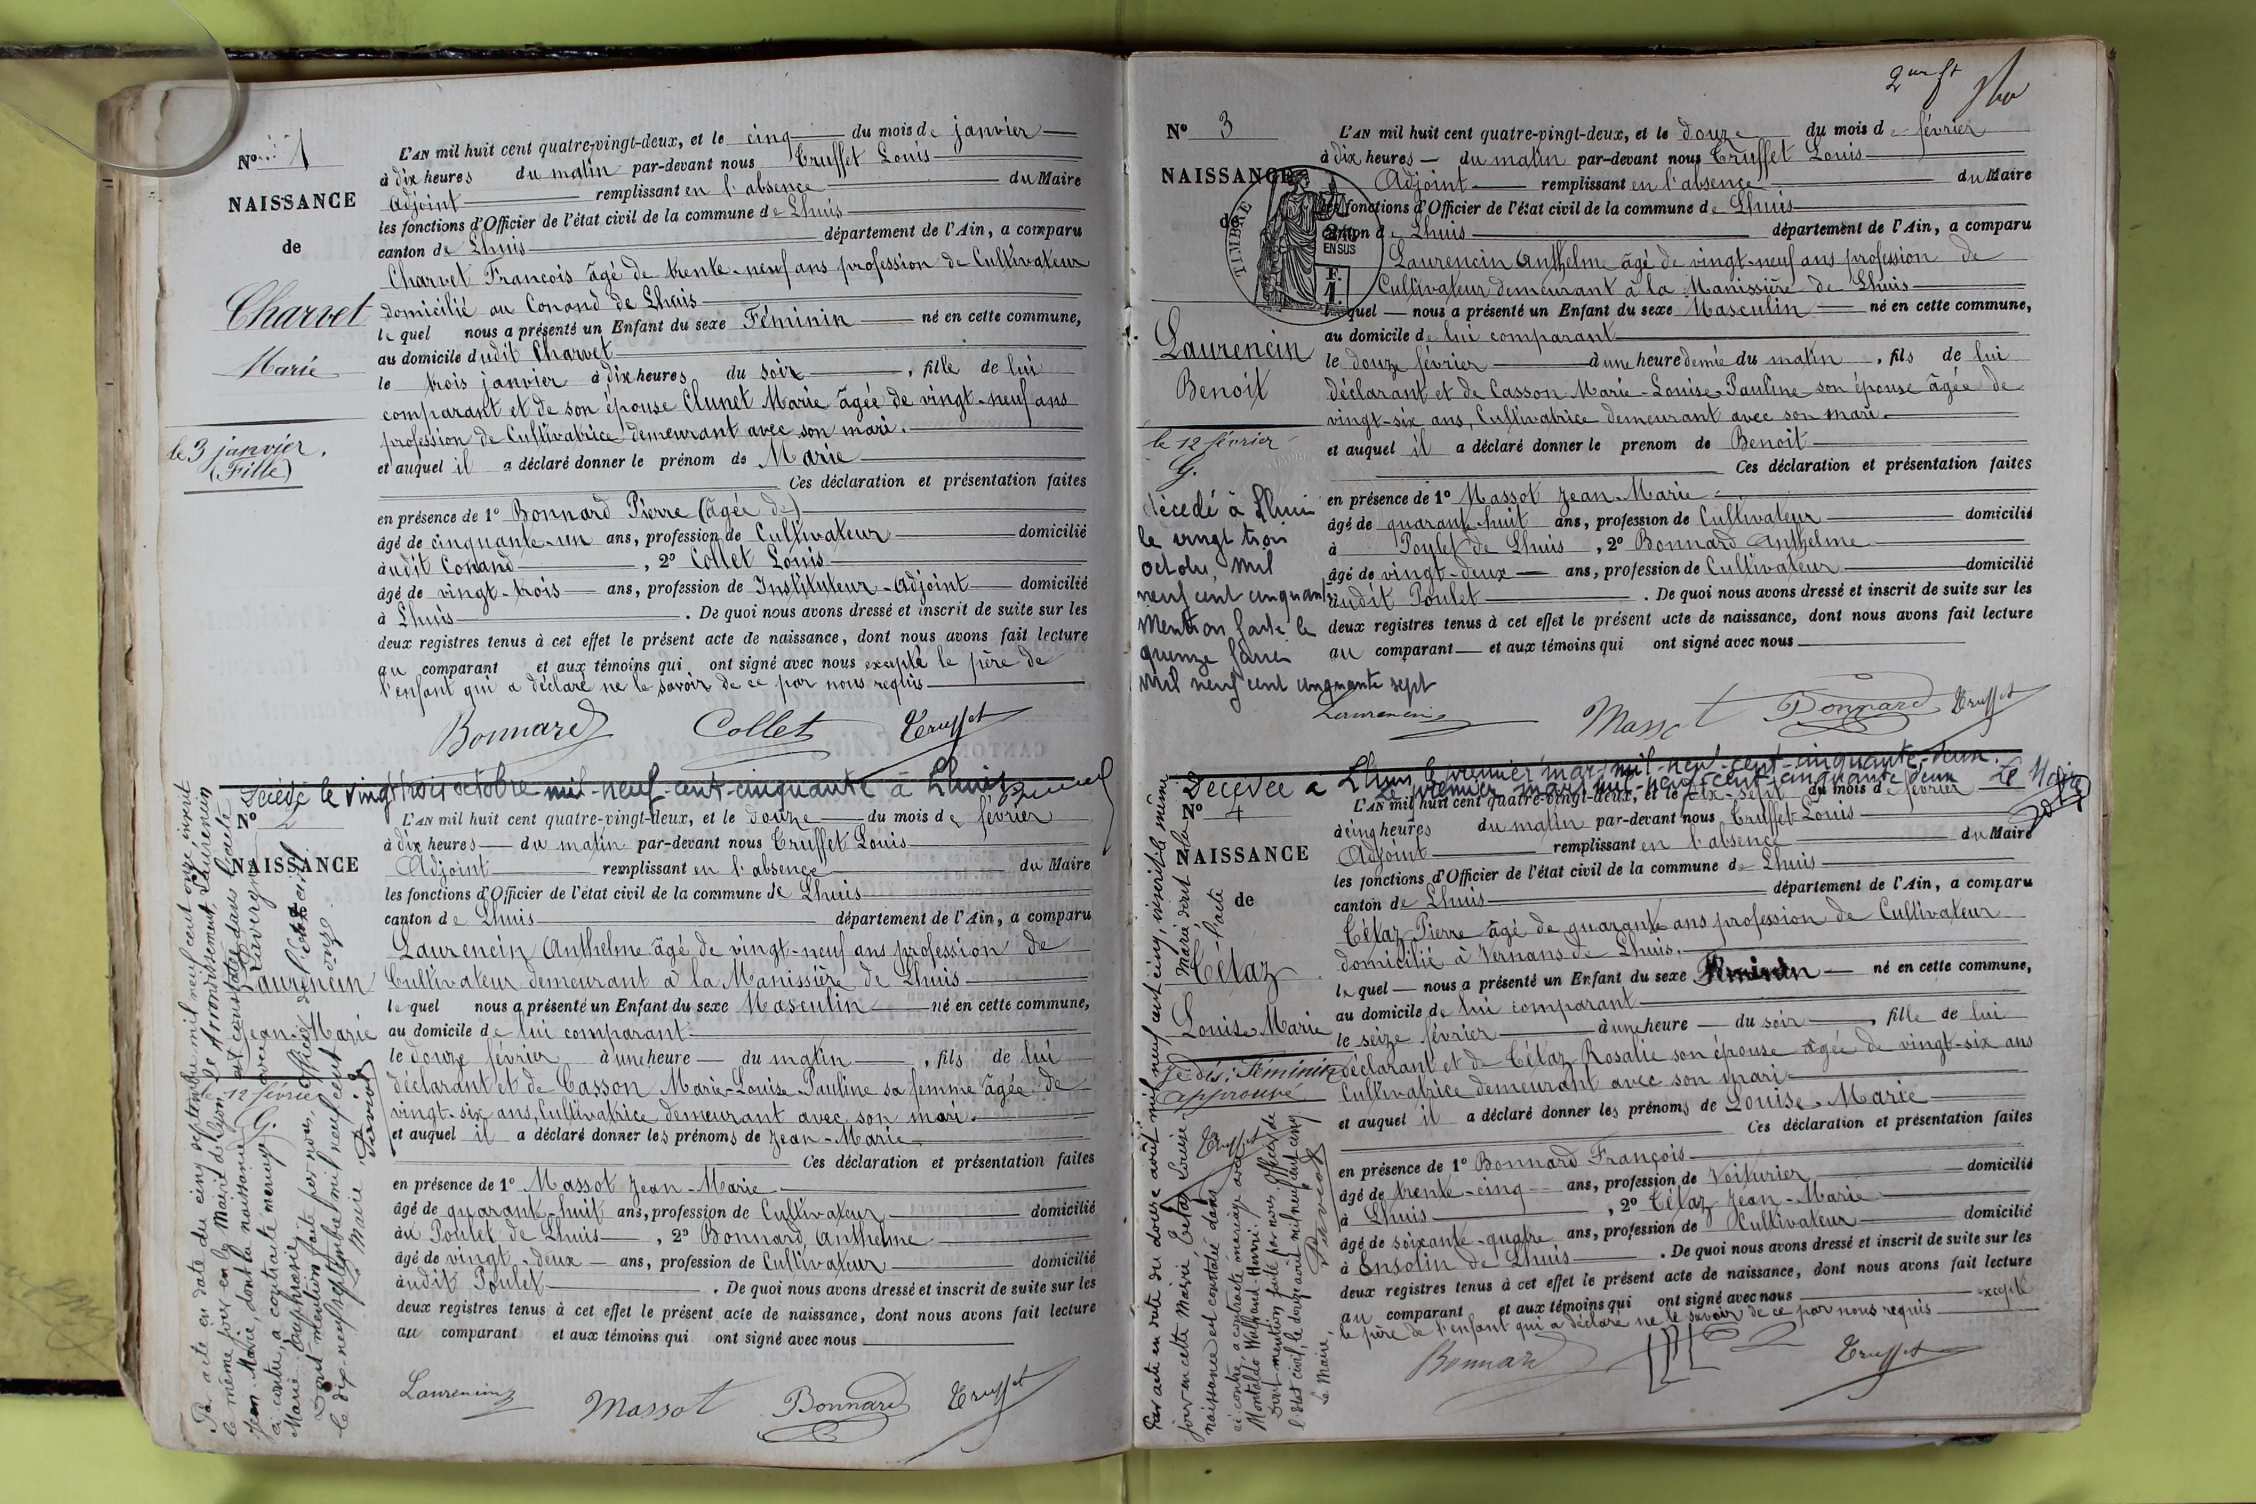 N° 1
NAISSANCE
de
Charvet
Marie
le 3 janvier.
(Fille)
L'AN mil huit cent quatre-vingt-deux, et le cinq du mois de janvier
à dix heures du matin par-devant nous Truffet Louis
Adjoint remplissant en l'absence du Maire
les fonctions d'Officier de l'état civil de la commune de Lhuis
canton de Lhuis département de l'Ain, a comparu
Charvet François âgé de trente-neuf ans profession de Cultivateur
domicilié au Conand de Lhuis
lequel nous a présenté un Enfant du sexe Féminin né en cette commune,
au domicile dudit Charvet
le trois janvier à dix heures du soir, fille de lui
comparant et de son épouse Clunet Marie âgée de vingt-neuf ans
profession de Cultivatrice demeurant avec son mari.
et auquel il a déclaré donner le prénom de Marie
Ces déclaration et présentation faites
en présence de 1° Bonnard Pierre (âgée de)
âgé de cinquante-un ans, profession de Cultivateur domicilié
audit Conand, 2° Collet Louis
âgé de vingt-trois ans, profession de Instituteur-Adjoint domicilié
à Lhuis. De quoi nous avons dressé et inscrit de suite sur les
deux registres tenus à cet effet le présent acte de naissance, dont nous avons fait lecture
au comparant et aux témoins qui ont signé avec nous excepté le père de
l'enfant qui a déclaré ne le savoir de ce par nous requis
Bonnard Collet Truffet
Décédé le vingt trois octobre mil-neuf-cent-cinquante à Lhuis
N° 2
NAISSANCE
Laurencin
Jean-Marie
12 février
G.
L'AN mil huit cent quatre-vingt-deux, et le douze du mois de février
à dix heures du matin par-devant nous Truffet Louis
Adjoint remplissant en l'absence du Maire
les fonctions d'Officier de l'état civil de la commune de Lhuis
canton de Lhuis département de l'Ain, a comparu
Laurencin Anthelme âgé de vingt-neuf ans profession de
Cultivateur demeurant à la Manissière de Lhuis
lequel nous a présenté un Enfant du sexe Masculin né en cette commune,
au domicile de lui comparant
le douze février à une heure du matin, fils de lui
déclarant et de Casson Marie-Louise-Pauline sa femme âgée de
vingt-six ans, Cultivatrice demeurant avec son mari.
et auquel il a déclaré donner les prénoms de Jean-Marie.
Ces déclaration et présentation faites
en présence de 1° Massot Jean-Marie
âgé de quarante-huit ans, profession de Cultivateur domicilié
au Poulet de Lhuis, 2° Bonnard Anthelme
âgé de vingt-deux ans, profession de Cultivateur domicilié
audit Poulet. De quoi nous avons dressé et inscrit de suite sur les
deux registres tenus à cet effet le présent acte de naissance, dont nous avons fait lecture
au comparant et aux témoins qui ont signé avec nous
Laurencin Massot Bonnard Truffet
Par acte en date du cinq septembre mil neuf cent onze, inscrit
le même jour en la Mairie de Lyon, 2e Arrondissement, Laurencin
Jean-Marie, dont la naissance est constatée dans l'acte
ci contre, a contracté mariage avec Lavergne
Marie Euphrosie
Dont mention faite par nous, officier de l'état civil
le dix-neuf septembre mil neuf cent onze.
Le Maire,
N° 3
NAISSANCE
de
Laurencin
Benoit
le 12 février
G.
décédé à Lhuis
le vingt trois
octobre, mil
neuf cent cinquante
Mention faite le
quinze janvier
mil neuf cent cinquante sept
TIMBRE
2/10
EN SUS
F.
1.
L'AN mil huit cent quatre-vingt-deux, et le douze du mois de février
à dix heures du matin par-devant nous Truffet Louis
Adjoint remplissant en l'absence du Maire
les fonctions d'Officier de l'état civil de la commune de Lhuis
canton de Lhuis département de l'Ain, a comparu
Laurencin Anthelme âgé de vingt-neuf ans profession de
Cultivateur demeurant à la Manissière de Lhuis
lequel nous a présenté un Enfant du sexe Masculin né en cette commune,
au domicile de lui comparant
le douze février à une heure demie du matin, fils de lui
déclarant et de Casson Marie-Louise-Pauline son épouse âgée de
vingt-six ans, Cultivatrice demeurant avec son mari.
et auquel il a déclaré donner le prenom de Benoit
Ces déclaration et présentation faites
en présence de 1° Massot Jean-Marie
âgé de quarante-huit ans, profession de Cultivateur domicilié
à Poulet de Lhuis, 2° Bonnard Anthelme
âgé de vingt-deux ans, profession de Cultivateur domicilié
audit Poulet. De quoi nous avons dressé et inscrit de suite sur les
deux registres tenus à cet effet le présent acte de naissance, dont nous avons fait lecture
au comparant et aux témoins qui ont signé avec nous
Laurencin Massot Bonnard Truffet
Décédée à Lhuis le premier mars mil-neuf-cent-cinquante-deux.
Le premier mars mil-neuf-cent-cinquante deux Le Maire
N° 4
NAISSANCE
de
Cétaz
Louise Marie
Je dis: Féminin
approuvé
Truffet
L'AN mil huit cent quatre-vingt-deux, et le dix-sept du mois de février
à cinq heures du matin par-devant nous Truffet Louis
Adjoint remplissant en l'absence du Maire
les fonctions d'Officier de l'état civil de la commune de Lhuis
canton de Lhuis département de l'Ain, a comparu
Cétaz Pierre âgé de quarante ans profession de Cultivateur
domicilié à Vernans de Lhuis.
lequel nous a présenté un Enfant du sexe Féminin né en cette commune,
au domicile de lui comparant
le seize février à une heure du soir, fille de lui
déclarant et de Cétaz Rosalie son épouse âgée de vingt-six ans
Cultivatrice demeurant avec son mari
et auquel il a déclaré donner les prénoms de Louise-Marie
Ces déclaration et présentation faites
en présence de 1° Bonnard François
âgé de trente-cinq ans, profession de Voiturier domicilié
à Lhuis, 2° Cétaz Jean-Marie
âgé de soixante-quatre ans, profession de Cultivateur domicilié
à Ensolin de Lhuis. De quoi nous avons dressé et inscrit de suite sur les
deux registres tenus à cet effet le présent acte de naissance, dont nous avons fait lecture
au comparant et aux témoins qui ont signé avec nous excepté
le père de l'enfant qui a déclaré ne le savoir de ce par nous requis
Bonnard Truffet
Par acte en date du douze août mil neuf cent cinq, inscrit le même
jour en cette Mairie Cétaz Louise Marie dont la
naissance est constatée dans l'acte
ci contre, a contracté mariage avec
Dont mention faite par nous officier de
l'état civil, le douze août mil neuf cent cinq
Le Maire,